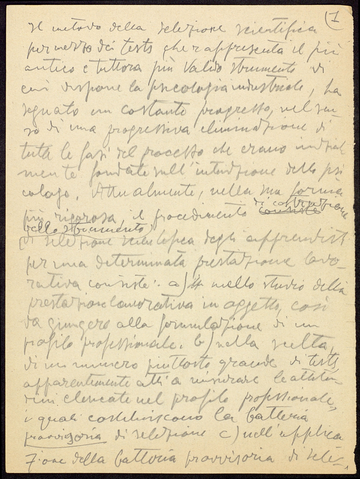 1
Il metodo della selezione scientifica
per mezzo dei tests che rappresenta il più
antico e tuttora più valido strumento di
cui dispone la psicologia industriale, ha
segnato un costante progresso, nel sen
so di una progressiva eliminazione di
tutte le fasi del processo che erano inizial
mente fondate sull'intuizione dello psi
cologo. Attualmente, nella sua forma
più rigorosa, il procedimento consiste
di costruzione
(dello strumento)
di selezione degli apprendisti
per una determinata prestazione lavo-
rativa consiste: a) nello studio della
prestazione lavorativa in oggetto, così
da giungere alla formulazione di un
profilo professionale. b) nella scelta,
di un numero piuttosto grande di tests
apparentemente atti a misurare le attitu-
dini elencate nel profilo professionale,
i quali costituiscono la batteria
provvisoria di selezione c) nell'applica
zione della batteria provvisoria di sele-